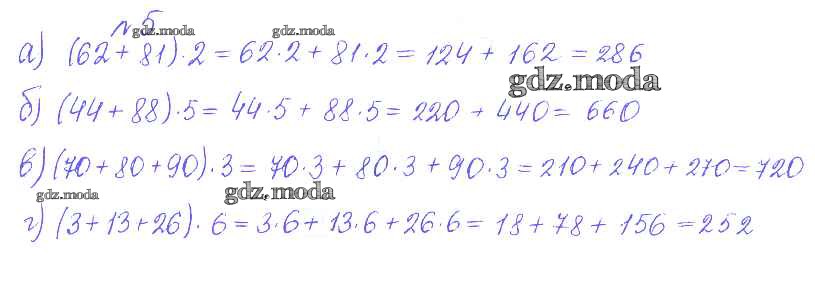 №5
gdz.moda gdz.moda
а) (62 + 81) · 2 = 62 · 2 + 81 · 2 = 124 + 162 = 286
gdz.moda
б) (44 + 88) · 5 = 44 · 5 + 88 · 5 = 220 + 440 = 660
в) (70 + 80 + 90) · 3 = 70 · 3 + 80 · 3 + 90 · 3 = 210 + 240 + 270 = 720
gdz.moda gdz.moda
г) (3 + 13 + 26) · 6 = 3 · 6 + 13 · 6 + 26 · 6 = 18 + 78 + 156 = 252